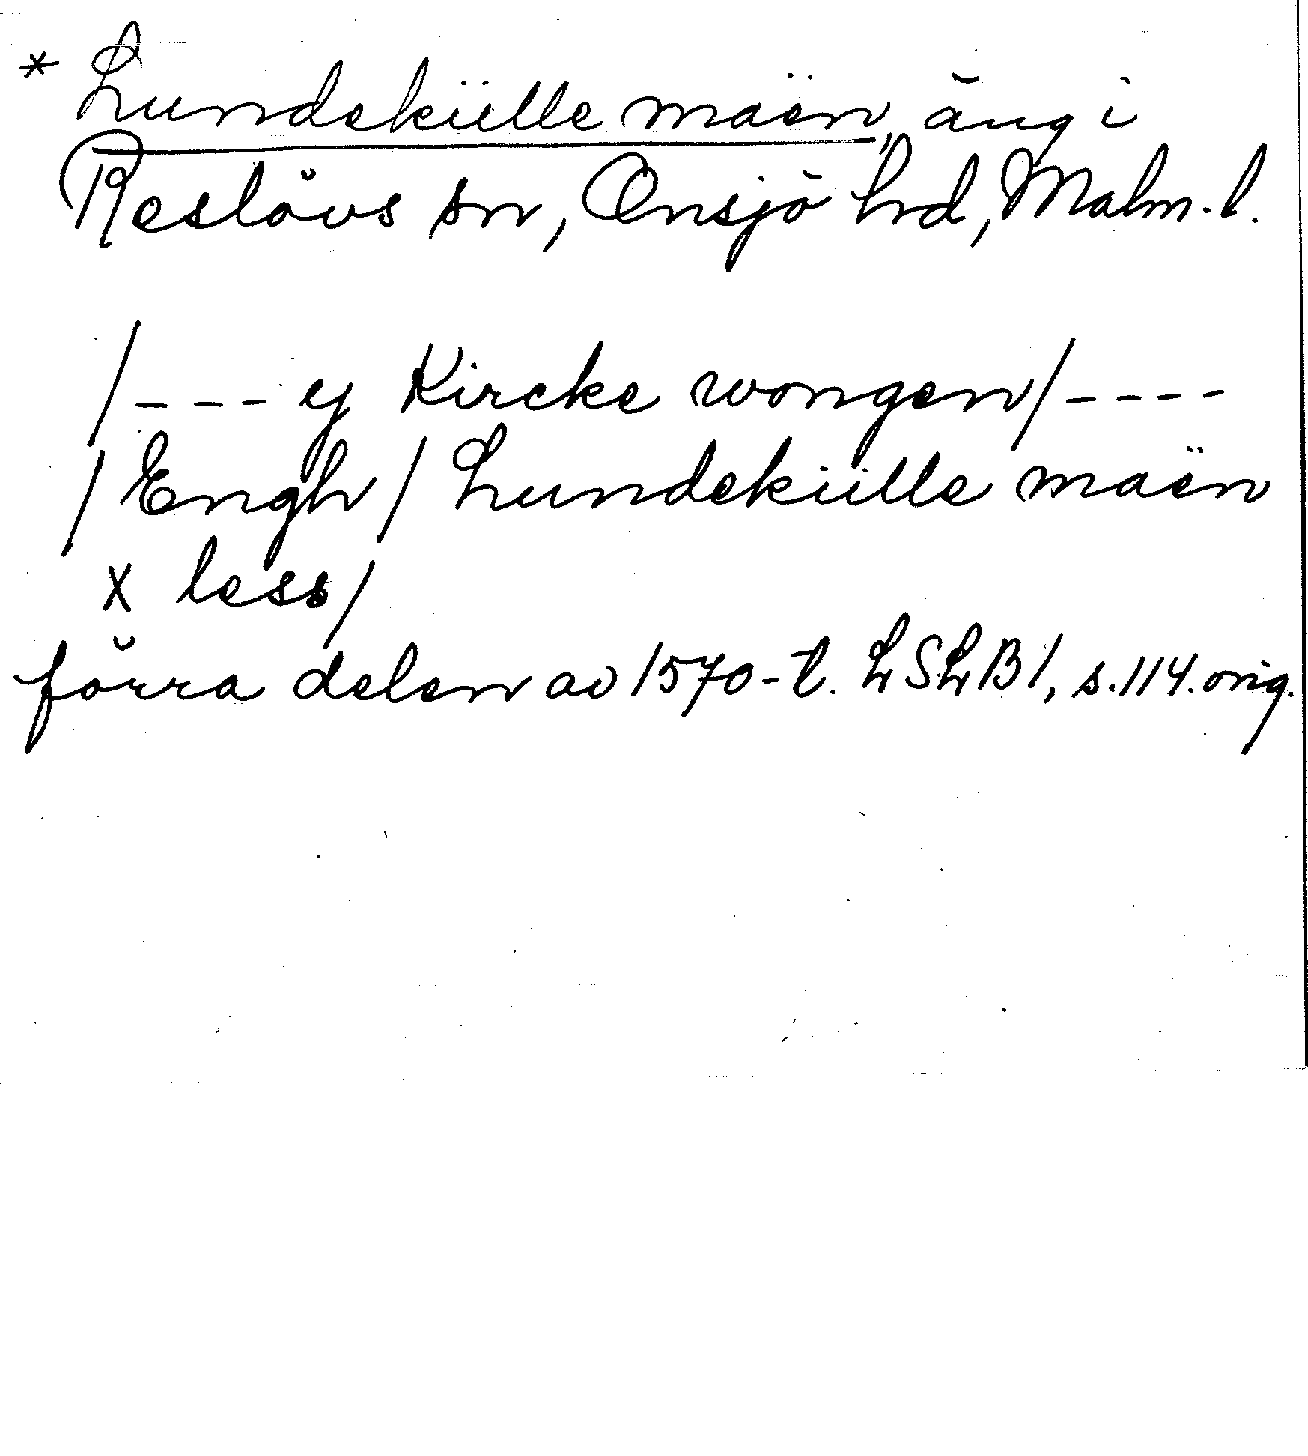 * Lundekülle maën, äng i
Reslövs sn, Onsjö hrd, Malm. l.
/ - - - ej Kircke wongen / - - - -
/ Engh / Lundekülle maën
x less /
förra delen av 1570-t. LSLB 1, s. 114. orig.